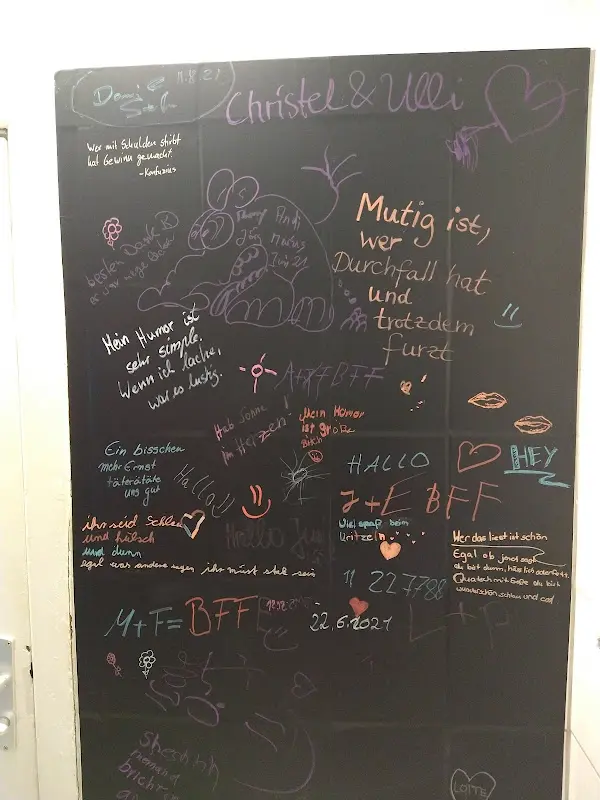 11.8.21
Christel & Ulli
Wer mit Schulden stirbt
hat Gewinn gemacht.
-Konfuzius
besten Dank
Andi
Juni 21
Mutig ist,
wer
Durchfall hat
und
trotzdem
furzt
Mein Humor ist
sehr simple.
Wenn ich lache,
war es lustig.
BFF
Hab Sonne
im Herzen!
Mein Humor
ist große
Bitch
Ein bisschen
mehr Ernst
täterätäte
uns gut
Hallo!!
HALLO
HEY
J+E BFF
ihr seid Schlau
und hübsch
und dünn
egal was andere sagen ihr müst stolz sein
Hallo
Viel spaß beim
Uritzeln
Wer das liest ist schön
Egal ob jemand sagt
du bist dumm, hässlich oder fett.
Quatsch mit Soße du bist
wunderschön schlau und cool
11 227788
M+F= BFF
22.6.2021
L+P
LOTTE